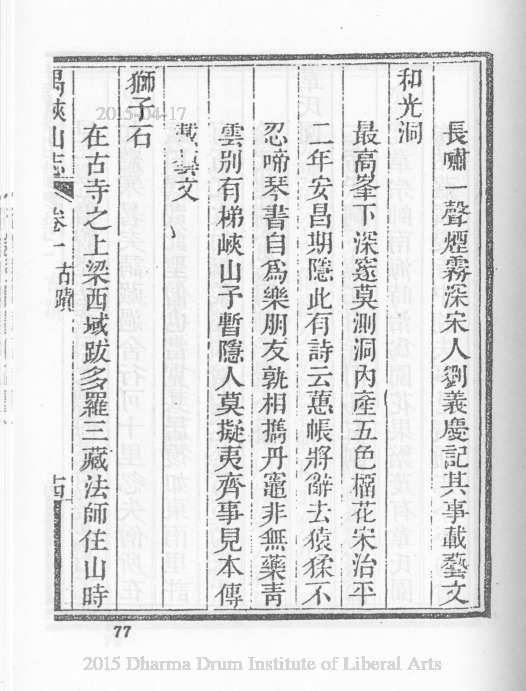 長嘯一聲煙霧深宋人劉義慶記其事載藝文
和光洞
最高峯下深窽莫測洞內產五色榴花宋治平
二年安昌期隱此有詩云蕙帳將辭去猿猱不
忍啼琴書自爲樂朋友孰相攜丹竈非無藥靑
雲别有梯峽山子暫隱人莫擬夷齊事見本傳
載藝文
獅子石
在古寺之上梁西域跋多羅三藏法師住山時
禺峽山志 卷一 古蹟 十四
77
2015-04-17
2015 Dharma Drum Institute of Liberal Arts